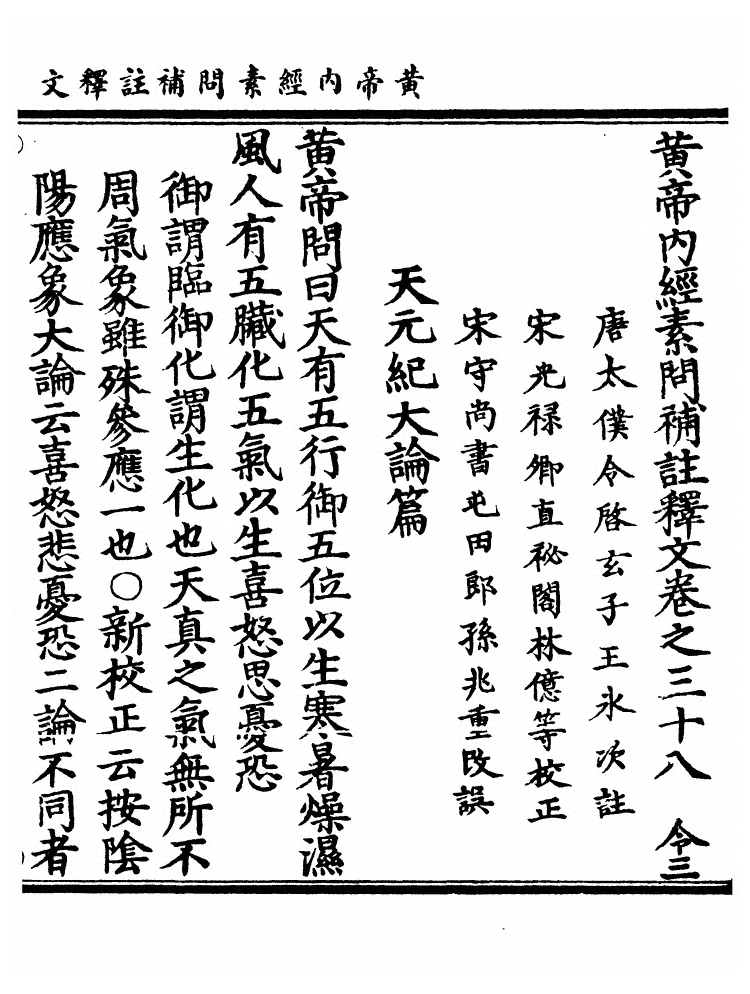 黄帝內經素問補註釋文
黄帝內經素問補註釋文卷之三十八 令三
唐太僕令啓玄子王氷次註
宋光禄卿直秘閣林億等校正
宋守尚書屯田郎孫兆重改誤
天元紀大論篇
黄帝問曰天有五行御五位以生寒暑燥濕
風人有五臟化五氣以生喜怒思憂恐
御謂臨御化謂生化也天真之氣無所不
周氣象雖殊參應一也○新校正云按陰
陽應象大論云喜怒悲憂恐二論不同者